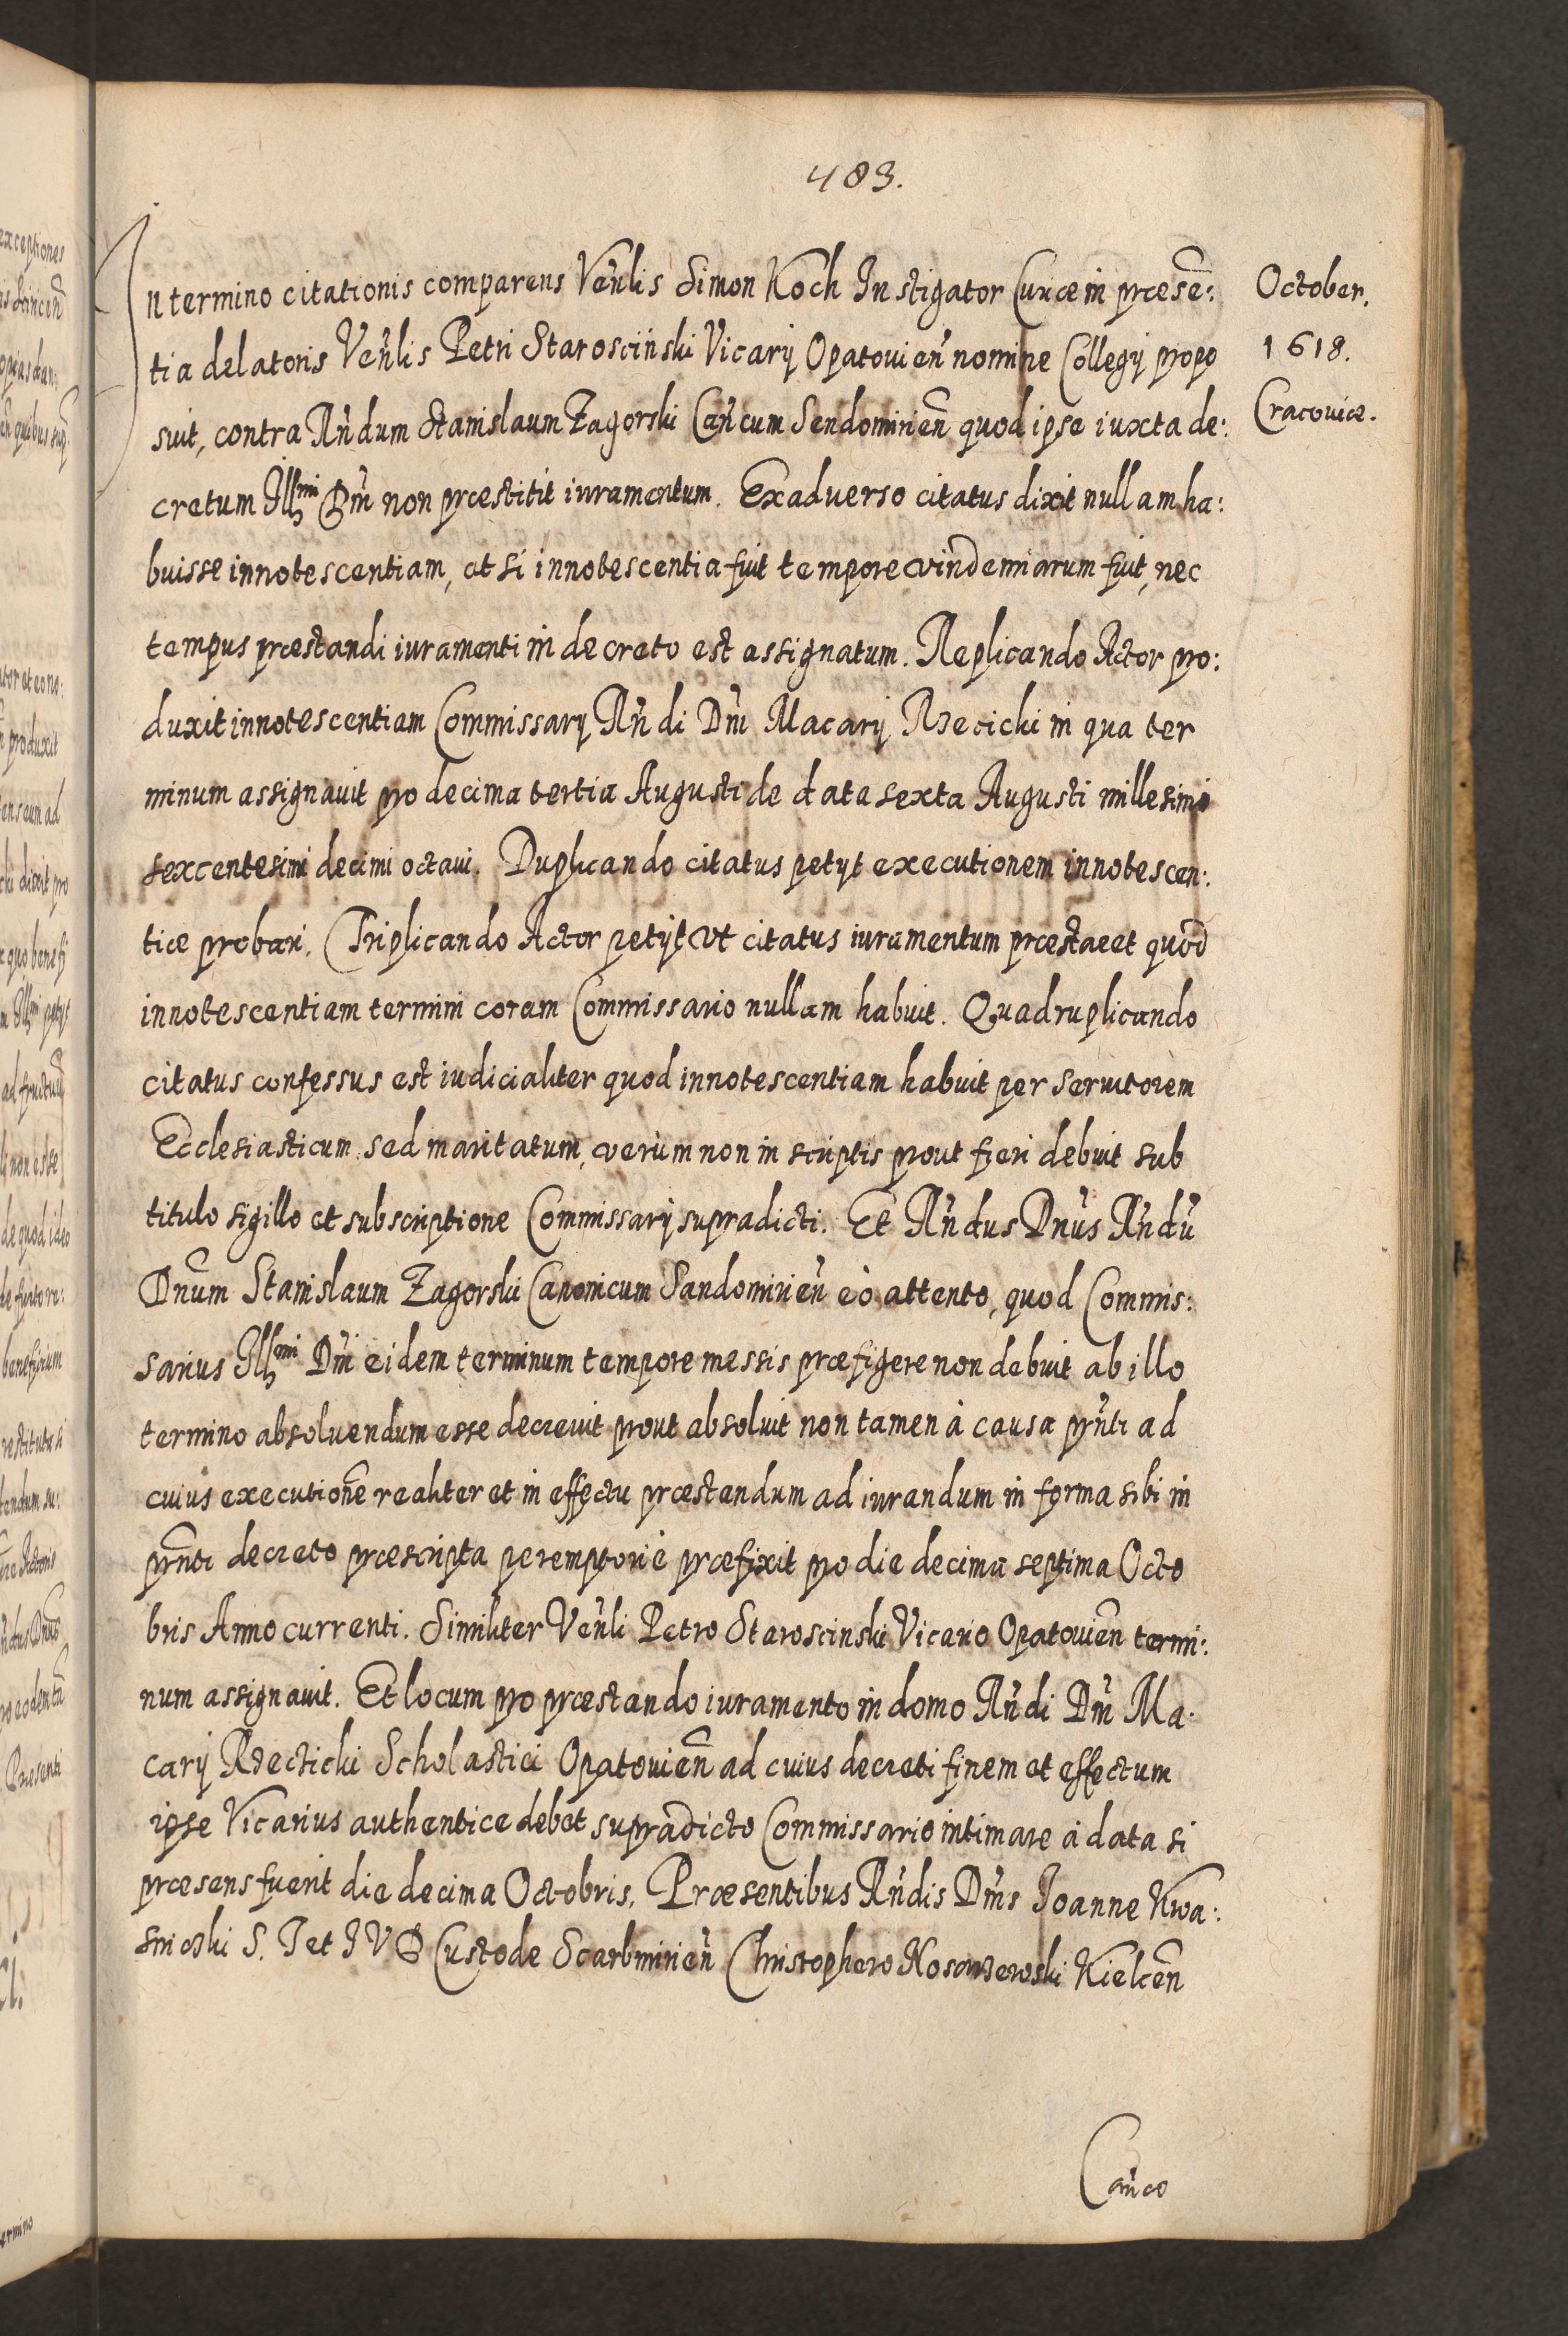 483.
October.
1618.
Cracoviæ.
In termino citationis comparens Venlis Simon Koch Instigator Curiæ in præsen:
tia delatoris Venlis Petri Staroscinski Vicarij Opatouien nomine Collegij propo
suit, contra Rndum Stanislaum Zagorski Cancum Sendomirien quod ipse iuxta de:
cretum Illmi Dni non præstitit iuramentum. Ex aduerso citatus dixit nullam ha:
buisse innotescentiam, et si innotescentia fuit tempore vindemiarum fuit, nec
tempus præstandi iuramenti in decreto est assignatum. Replicando Actor pro:
duxit innotescentiam Commissarij Rndi Dni Macarij Rzecicki in qua ter
minum assignauit pro decima tertia Augusti de data sexta Augusti millesimi
sexcentesimi decimi octaui. Duplicando citatus petyt executionem innotescen:
tiæ probari. Triplicando Actor petijt vt citatus iuramentum præstaret quod
innotescentiam termini coram Commissario nullam habuit. Quadruplicando
citatus confessus est iudicialiter quod innotescentiam habuit per seruitorem
Ecclesiasticum sed maritatum, verùm non in scriptis prout fieri debuit sub
titulo sigillo et subscriptione Commissarij supradicti. Et Rndus Dnus Rndu
Dnum Stanislaum Zagorski Canonicum Sandomirien eò attento, quod Commis:
sarius Illmi Dni eidem terminum tempore messis præfigere non debuit ab illo
termino absoluendum esse decreuit prout absoluit non tamen à causa pnti ad
cuius executione realiter et in effectu præstandum ad iurandum in forma sibi in
pnti decreto præscripta peremptoriè præfixit pro die decima septima Octo
bris Anno currenti. Similiter Venli Petro Staroscinski Vicario Opatouien termi:
num assignauit. Et locum pro præstando iuramento in domo Rndi Dni Ma.
carij Rzecticki Scholastici Opatouien ad cuius decreti finem et effectum
ipse Vicarius authentice debet supradicto Commissario intimare à data si
præsens fuerit die decima Octobris. Præsentibus Rndis Dnis Ioanne Kwa:
S. T et I V D Custode Scarbmirien Christophero Kielcen
Canco